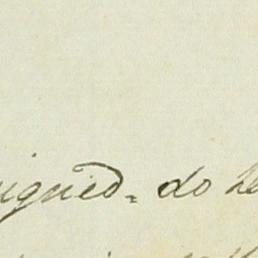 igned = do he